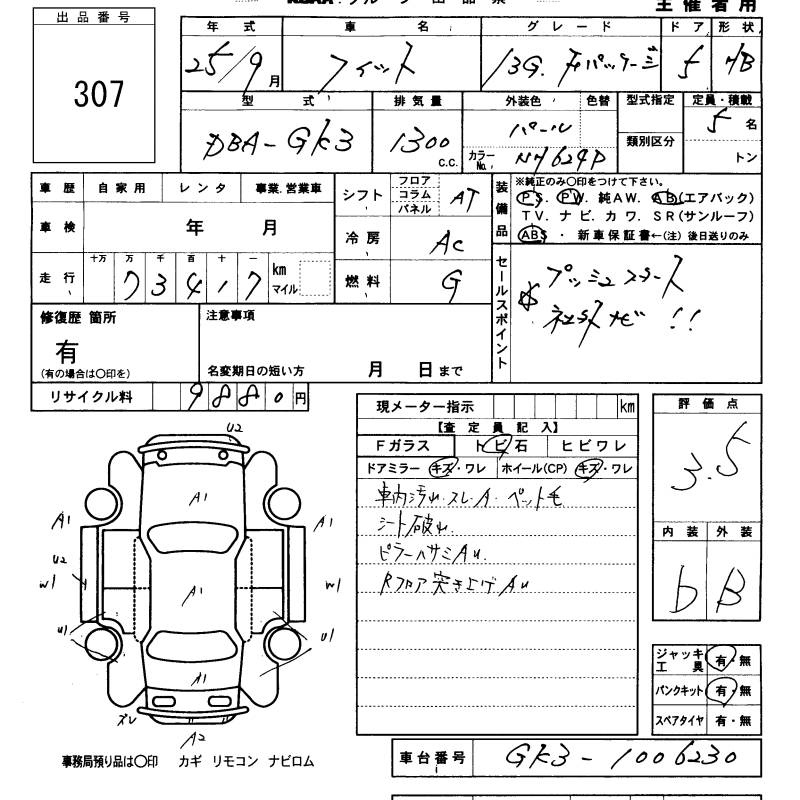 主催者用
出品番号
307
年式 車名 グレード ドア 形状
25/9月 フィット 13G.Fパッケージ 5 H/B
型式 排気量 外装色 色替 型式指定 定員・積載
DBA-GK3 1300 C.C. パール 5名
カラーNo. NH624P 類別区分 トン
車歴 自家用 レンタ 事業.営業車
車検 年 月
走行 十万 万 千 百 十 一
73417 km マイル
シフト フロア コラム パネル AT
冷房 AC
燃料 G
装備品
※純正のみ○印をつけて下さい。
P.S. P.W. 純AW. A.B.(エアバック)
T.V. ナビ.カワ.SR(サンルーフ)
ABS ・ 新車保証書←(注)後日送りのみ
セールスポイント
プッシュスタート
社外ナビ!!
修復歴 箇所
有
(有の場合は○印を)
注意事項
名変期日の短い方 月 日まで
リサイクル料 9880円
現メーター指示 km
【査定員記入】
Fガラス トビ石 ヒビワレ
ドアミラー キズ・ワレ ホイール(CP) キズ・ワレ
車内汚れ.スレ.A.ペット毛
シート破れ.
ピラーハサミAu.
Rフロア突き上げAu
評価点
3.5
内装 外装
b B
ジャッキ工具 有・無
パンクキット 有・無
スペアタイヤ 有・無
U2
A1
A1 A1
U2
W1 A1 W1
U1 U1
A1
ズレ
A2
事務局預り品は○印 カギ リモコン ナビロム
車台番号 GK3-1006230